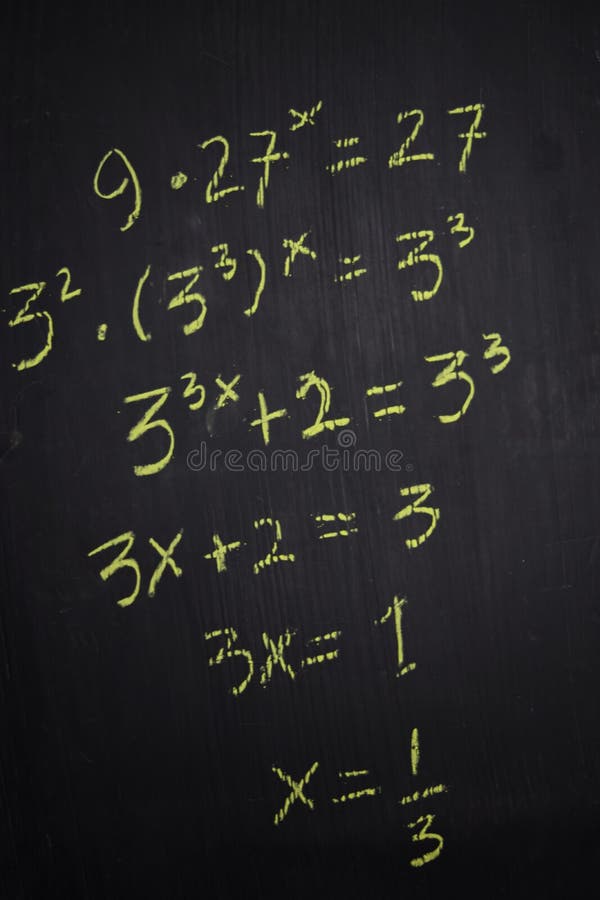 9 · 27ˣ = 27
3² · (3³)ˣ = 3³
3³ˣ + 2 = 3³
dreamstime.com
3x + 2 = 3
3x = 1
x = 1/3